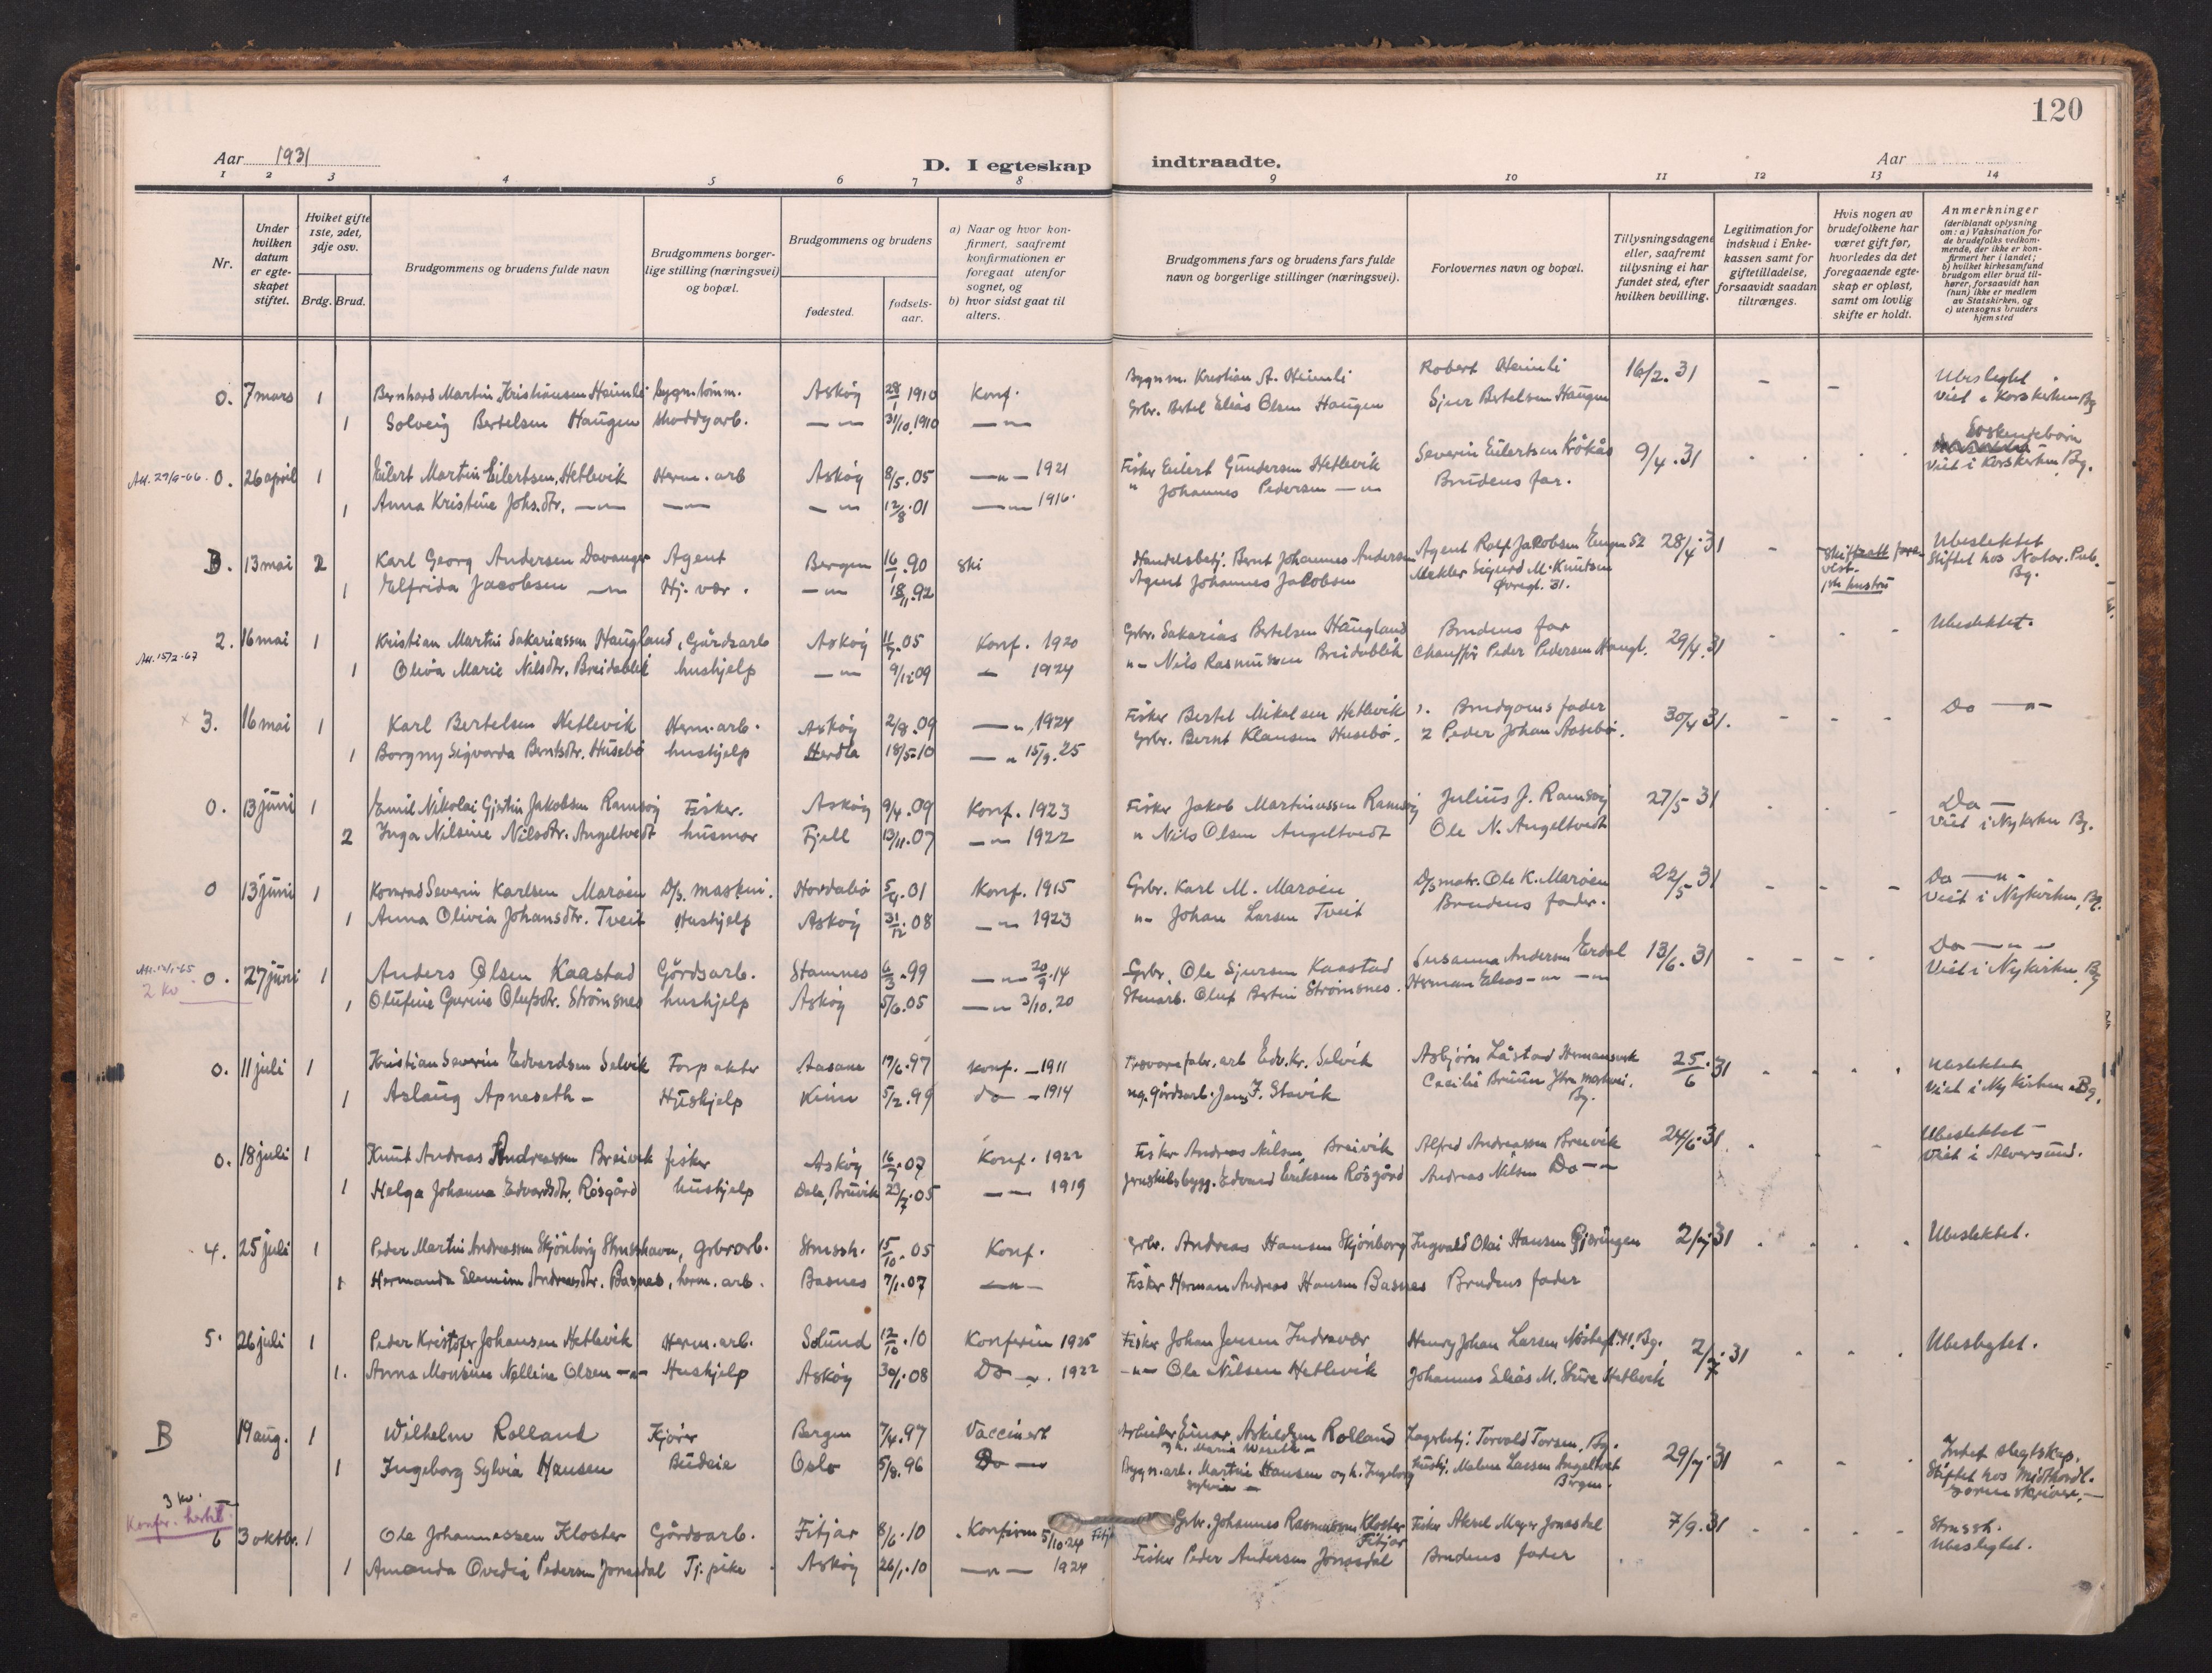 120
Aar 1931
D. I egteskap indtraadte.
Aar
1 2 3 4 5 6 7 8 9 10 11 12 13 14
Nr.
Under hvilken datum er egteskapet stiftet.
Hviket gifte 1ste, 2det, 3dje osv.
Brdg. Brud.
Brudgommens og brudens fulde navn
Brudgommens borgerlige stilling (næringsvei) og bopæl.
Brudgommens og brudens
fødested.
fødselsaar.
a) Naar og hvor konfirmert, saafremt konfirmationen er foregaat utenfor sognet, og
b) hvor sidst gaat til alters.
Brudgommens fars og brudens fars fulde navn og borgerlige stillinger (næringsvei).
Forlovernes navn og bopæl.
Tillysningsdagene eller, saafremt tillysning ei har fundet sted, efter hvilken bevilling.
Legitimation for indskud i Enkekassen samt for giftetilladelse, forsaavidt saadan tiltrænges.
Hvis nogen av brudefolkene har været gift før, hvorledes da det foregaaende egteskap er opløst, samt om lovlig skifte er holdt.
Anmerkninger (deriblandt oplysning om: a) Vaksination for de brudefolks vedkommende, der ikke er konfirmert her i landet; b) hvilket kirkesamfund brudgom eller brud tilhører, forsaavidt han (hun) ikke er medlem av Statskirken, og c) utensogns bruders hjemsted
0. 7 mars 1 Bernhard Martin Kristiansen Heimli bygn.tømm. Askøy 28/1 1910 Konf. Bygnm. Kristian A. Heimli Robert Heimli 16/2.31 - - Ubeslegtet
1 Solveig Bertelsen Haugen shoddyarb. -"- 31/10.1910 -"- Grbr. Bertel Elias Olsen Haugen Sjur Bertelsen Haugen Viet i Korskirken Bg
Att. 29/6-66. 0. 26 april 1 Eilert Martin Eilertsen Hetlevik Herm. arb Askøy 8/5.05 -"- 1921 Fisker Eilert Gundersen Hetlevik Severin Eilertsen Kråkås 9/4.31 Søskendebørn
1 Anna Kristine Johs.dtr. -"- -"- -"- 12/8.01 -"- 1916. " Johannes Pedersen -"- Brudens far. Viet i Korskirken Bg.
B. 13 mai 2 Karl Georg Andersen Davanger Agent Bergen 16/1.90 Ski Handelsbetj. Bernt Johannes Andersen Agent Rolf Jakobsen Engen 52 28/4.31 - Skifteatt. forevist. 1ste hustru Ubeslektet
1 Elfrida Jacobsen -"- Hj. vær. -"- 18/11.92 Agent Johannes Jacobsen Mekler Sigurd M. Knutsen Øvregt. 31. Stiftet hos Notar. Pub. Bg.
Att. 15/2-67 2. 16 mai 1 Kristian Martin Sakariassen Haugland, Gårdsarb Askøy 11/7.05 Konf. 1920 Grbr. Sakarias Bertelsen Haugland Brudens far 29/4.31 Ubeslektet.
1 Oliva Marie Nilsdtr. Breidablik hushjelp -"- 9/12.09 - 1924 "- Nils Rasmussen Breidablik Chauffør Peder Pedersen Haugl.
x 3. 16 mai 1 Karl Bertelsen Hetlevik Herm.arb. Askøy 2/8.09 -"- 1924 Fisker Bertel Mikalsen Hetlevik 1. Brudgoms fader 30/4 31. Do -"-
1 Borgny Sigvarda Berntsdtr. Husebø hushjelp Herdla 18/5.10 -" 15/9.25 Grbr. Bernt Klausen Husebø. 2 Peder Johan Aasebø.
0. 13 juni 1 Emil Nikolai Gjertin Jakobsen Ramsøy Fisker. Askøy 9/4.09 Konf. 1923 Fisker Jakob Martinussen Ramsøy Julius J. Ramsøy 27/5 31 Do -
2 Inga Nilsine Nilsdtr. Angeltvedt husmor Fjell 13/11.07 -"- 1922 " Nils Olsen Angeltvedt Ole N. Angeltvedt Viet i Nykirken Bg.
0 13 juni 1 Konrad Severin Karlsen Marøen D/s. maskni. Hordabø 5/4.01 Konf. 1915 Grbr. Karl M. Marøen D/s matr. Ole K. Marøen 22/5 31 Do -"-
1 Anna Olivia Johansdtr. Tveit Hushjelp Askøy 31/12.08 -"- 1923 "- Johan Larsen Tveit Brudens fader. Viet i Nykirken, Bg.
2 kv 0. 27 juni 1 Anders Olsen Kaastad Gårdsarb. Stamnes 6/3.99 -"- 20/9.14 Grbr. Ole Sjursen Kaastad Susanna Andersen Erdal 13/6.31 Do -"-
1 Olufine Gurine Olufsdtr. Strømsnes hushjelp Askøy 5/6.05 -"- 3/10.20 Stenarb. Oluf Bertin Strømsnes. Herman Elias -"- Viet i Nykirken. Bg
0. 11 juli 1 Kristian Severin Edvardsen Selvik Forpakter Aasane 17/6.97 Konf. - 1911 Trævarefabr. arb Edv. Kr. Selvik Asbjørn Låstad Hermansverk 25/6.31 Ubeslektet
1 Aslaug Apneseth - Hushjelp Kinn 5/2.99 do - 1914 ng. gårdsarb. Jens J. Stavik Cecilie Bruun Ytre Markvei. Bg. Viet i Nykirken Bg.
0. 18 juli 1 Knut Andreas Andreassen Breivik fisker Askøy 16/7.07 Konf. 1922 Fisker Andreas Nilsen, Breivik Alfred Andreassen Breivik 24/6.31. Ubeslektet
1 Helga Johanna Edvardsdtr. Rösgård hushjelp Dale, Bruvik 23/7.05 -"- 1919 jernskibsbygg. Edvard Eriksen Rösgård Andreas Nilsen Do -"- Viet i Alversund.
4. 25 juli 1 Peder Martin Andreassen Skjönborg Strussham, grbrarb. Strussh. 15/10.05 Konf. Grbr. Andreas Hansen Skjönborg Ingvald Olai Hansen Gjeringen 2/7 31 Ubeslektet.
1 Hermanda Andreasdtr. Basnes, herm. arb. Basnes 7/1.07 -"- Fisker Herman Andreas Hansen Basnes Brudens fader
5. 26 juli 1 Peder Kristofer Johansen Hetlevik Herm. arb. Solund 12/10.10 Konferin 1925 Fisker Johan Jensen Indrevær Henry Johan Larsen Nøstegt. 41. Bg. 2/7.31 Ubeslegtet.
1. Anna Monsine Nelline Olsen -"- Hushjelp Askøy 30/1.08 Do -". 1922 -"- Ole Nilsen Hetlevik Johannes Elias M. Sture Hetlevik
B 19 aug. 1 Wilhelm Rolland Kjører Bergen 7/4.97 Vaccinert Arbeider Einar Askildsen Rolland Lagerbetj. Torvald Torsen, Bg. 29/7 31 Intet slegtskap.
1 Ingeborg Sylvia Hansen Budeie Oslo 5/8.96 Do - Bygn.arb. Martin Hansen og h. Ingeborg Sylvia - Hushj. Malene Larsen Angeltveit Bergen. Stiftet hos Midthordl. sorenskriver. -
3 kv. Konfir. hertil.
6 3 oktbr. 1 Ole Johannessen Kloster Gårdsarb. Fitjar 8/6.10 Konfirm 5/10.24 Fitjar Grbr. Johannes Rasmussen Kloster Fitjar Fisker Aksel Meyer Jonasdal 7/9.31 Strussh.
1 Amanda Ovedia Pedersen Jonasdal Tj. pike Askøy 26/1.10 -"- 1924 Fisker Peder Andersen Jonasdal Brudens fader Ubeslegtet.